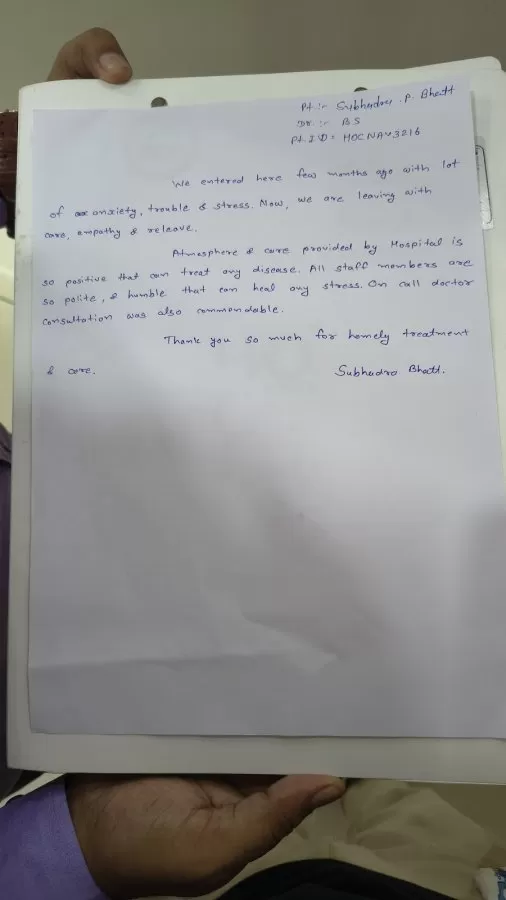 Pt :- Subhadra .P. Bhatt
Dr. :- BS
Pt. I.D = HOCNAV3216
We entered here few months ago with lot
of anxiety, trouble & stress. Now, we are leaving with
care, empathy & releave.
Atmosphere & care provided by Hospital is
so positive that can treat any disease. All staff members are
so polite, & humble that can heal any stress. On call doctor
consultation was also commendable.
Thank you so much for homely treatment
& care.
Subhadra Bhatt.